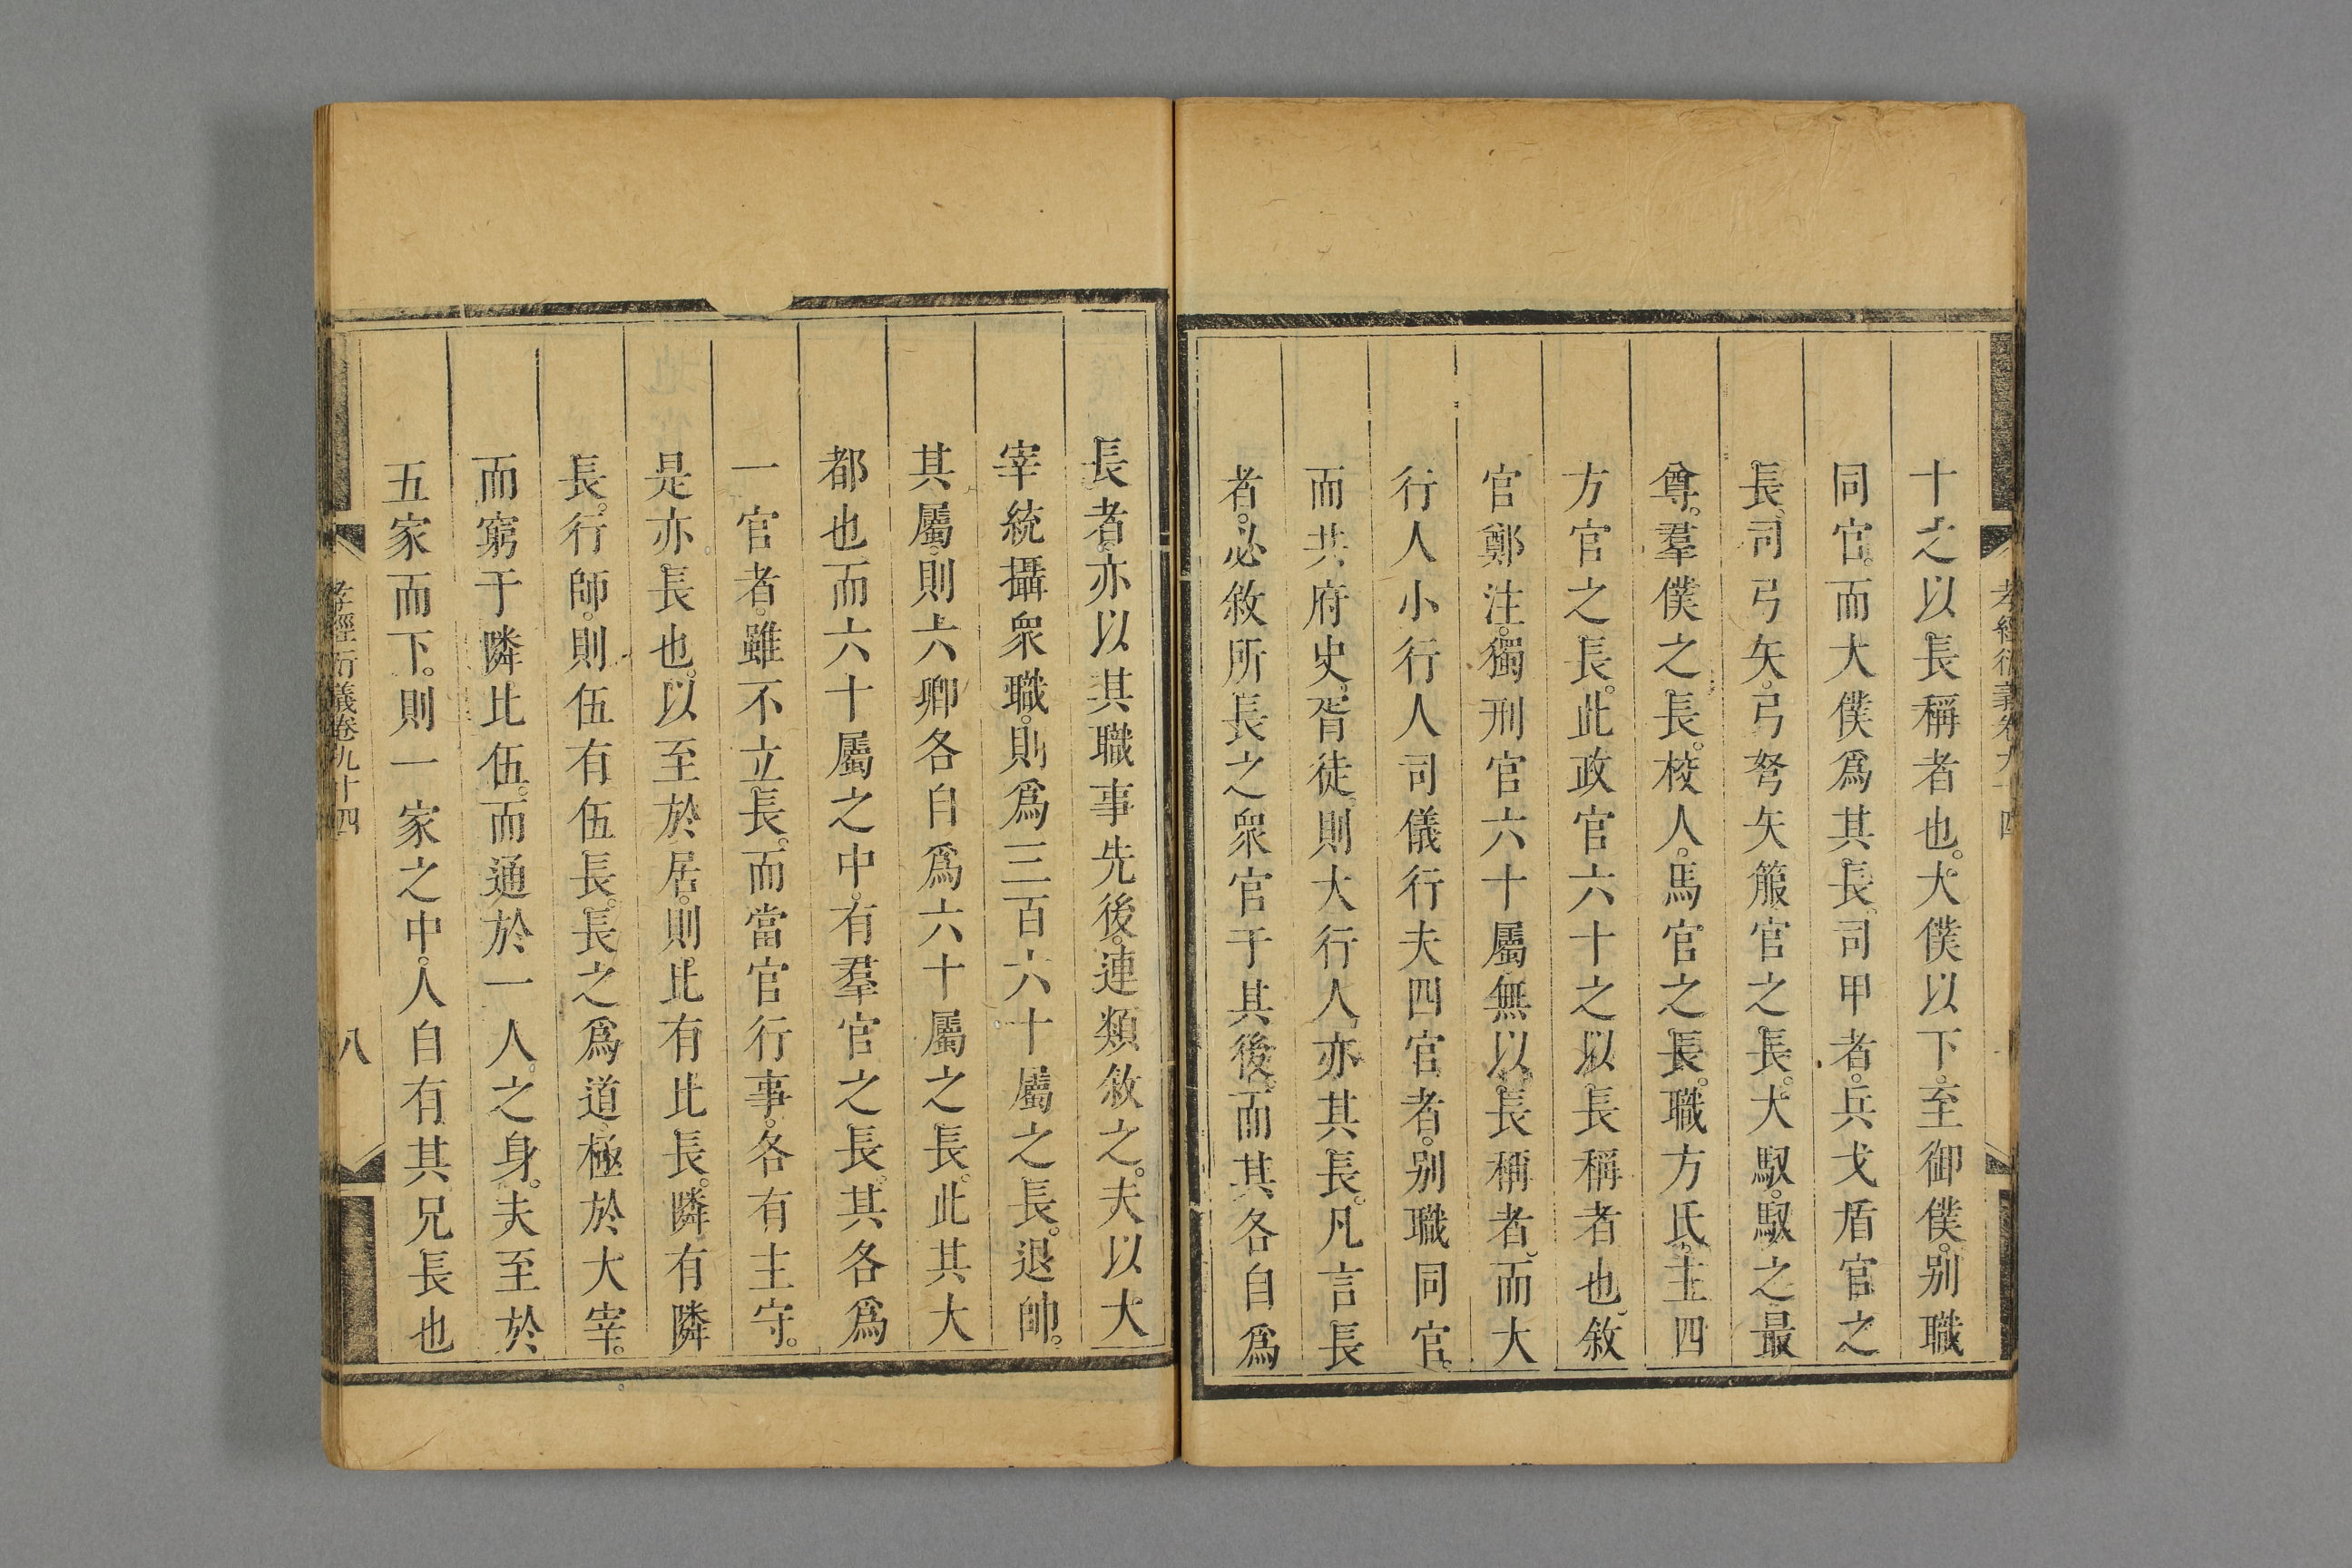 十之以長稱者也。大僕以下。至御僕。别職
同官。而大僕爲其長。司甲者。兵戈盾官之
長。司弓矢。弓弩矢箙官之長。大馭。馭之最
尊。羣僕之長。校人。馬官之長。職方氏。主四
方官之長。此政官六十之以長稱者也。敘
官鄭注。獨刑官六十屬無以長稱者。而大
行人小行人司儀行夫四官者。别職同官。
而共府史。胥徒。則大行人亦其長。凡言長
者。必敘所長之衆官于其後。而其各自爲
長者。亦以其職事先後。連類敘之。夫以大
宰統攝衆職。則爲三百六十屬之長。退帥。
其屬。則六卿各自爲六十屬之長。此其大
都也而六十屬之中。有羣官之長。其各爲
一官者。雖不立長。而當官行事。各有主守。
是亦。長也。以至於居。則比有比長。隣有隣
長。行師。則伍有伍長。長之爲道。極於大宰。
而窮于隣比伍。而通於一人之身。夫至於
五家而下。則一家之中。人自有其兄長也
孝經衍義卷九十四
八